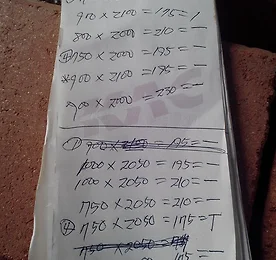 900 × 2100 = 175 = 1
800 × 2000 = 210 = —
④ 750 × 2000 = 195 = —
*900 × 2100 = 195 = —
900 × 2000 = 230 = —
① 900 × 2150 = 195 = —
1000 × 2050 = 195 = —
1000 × 2050 = 210 = —
750 × 2050 = 210 = —
④ 750 × 2050 = 175 = T
750 × 2050
175 = —